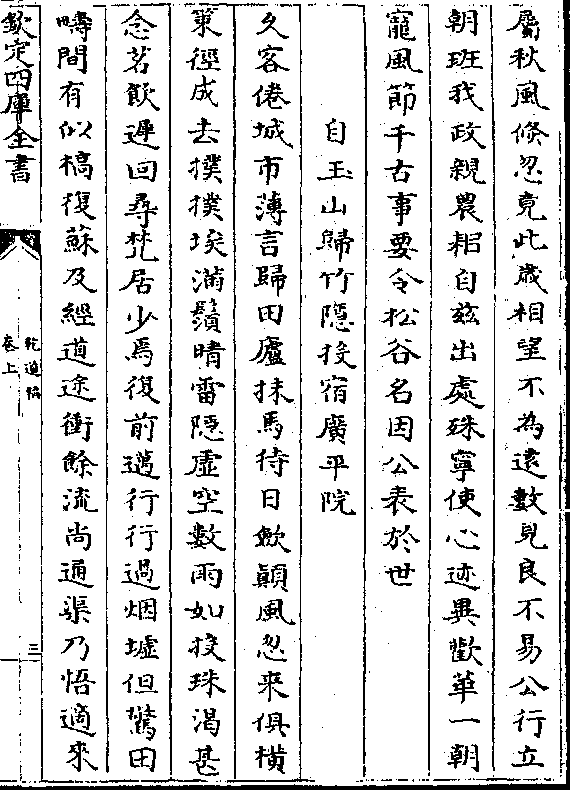 屬秋風倏忽竟此歲相望不為遠數見良不易公行立
朝班我政親農耜自兹出處殊寧使心迹異歡華一朝
寵風節千古事要令松谷名因公表於世
自玉山歸竹隱投宿廣平院
久客倦城市薄言歸田廬抹馬待日歘顛風忽來俱橫
策徑成去撲撲埃滿鬚晴雷隱虛空數雨如投珠渴甚
念茗飲遲回尋梵居少焉復前邁行行過烟墟但驚田
疇間有似槁復蘇及經道途衝餘流尚通渠乃悟適來
欽定四庫全書
乾道稿
卷上
三